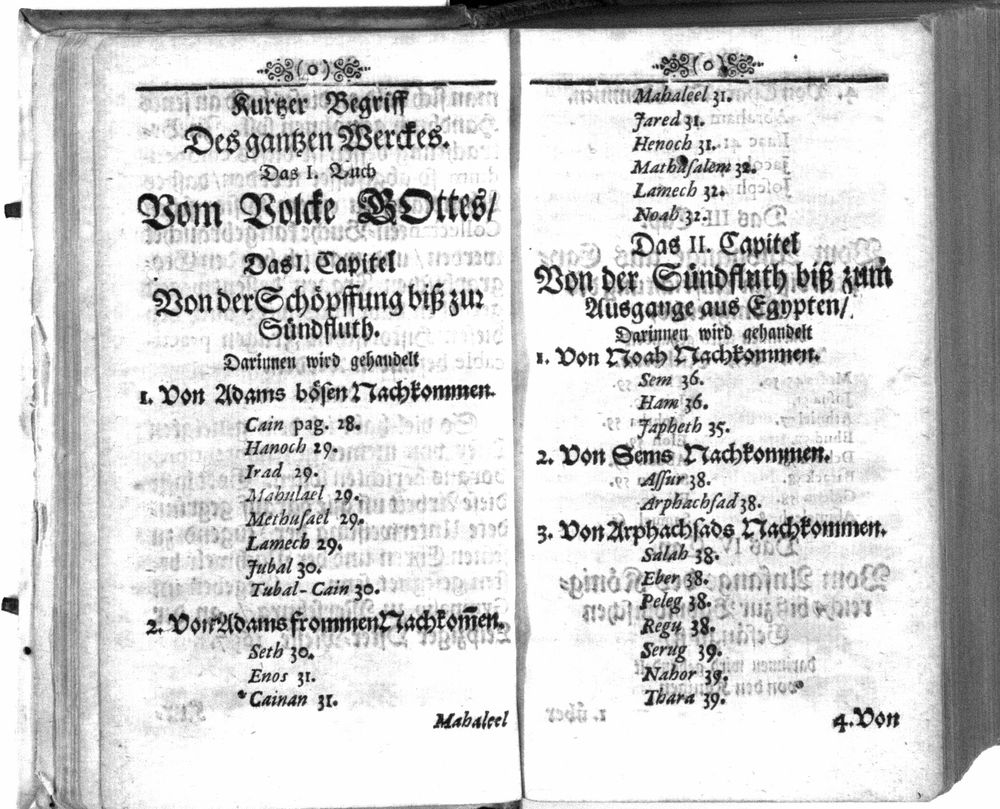 (o)
Kurtzer Begriff
Des gantzen Werckes.
Das I. Buch
Vom Volcke GOttes/
Das I. Capitel
Von der Schöpffung biß zur
Sündfluth.
Darinnen wird gehandelt
1. Von Adams bösen Nachkommen.
Cain pag. 28.
Hanoch 29.
Irad 29.
Mahulael 29.
Methusael 29.
Lamech 29.
Jubal 30.
Tubal-Cain 30.
2. Von Adams frommen Nachkom̃en.
Seth 30.
Enos 31.
Cainan 31.
Mahaleel
(o)
Mahaleel 31.
Jared 31.
Henoch 31.
Mathusalem 32.
Lamech 32.
Noah 32.
Das II. Capitel
Von der Sündfluth biß zum
Ausgange aus Egypten/
Darinnen wird gehandelt
1. Von Noah Nachkommen.
Sem 36.
Ham 36.
Japheth 35.
2. Von Sems Nachkommen.
Assur 38.
Arphachsad 38.
3. Von Arphachsads Nachkommen.
Salah 38.
Eber 38.
Peleg 38.
Regu 38.
Serug 39.
Nahor 39.
Thara 39.
4. Von